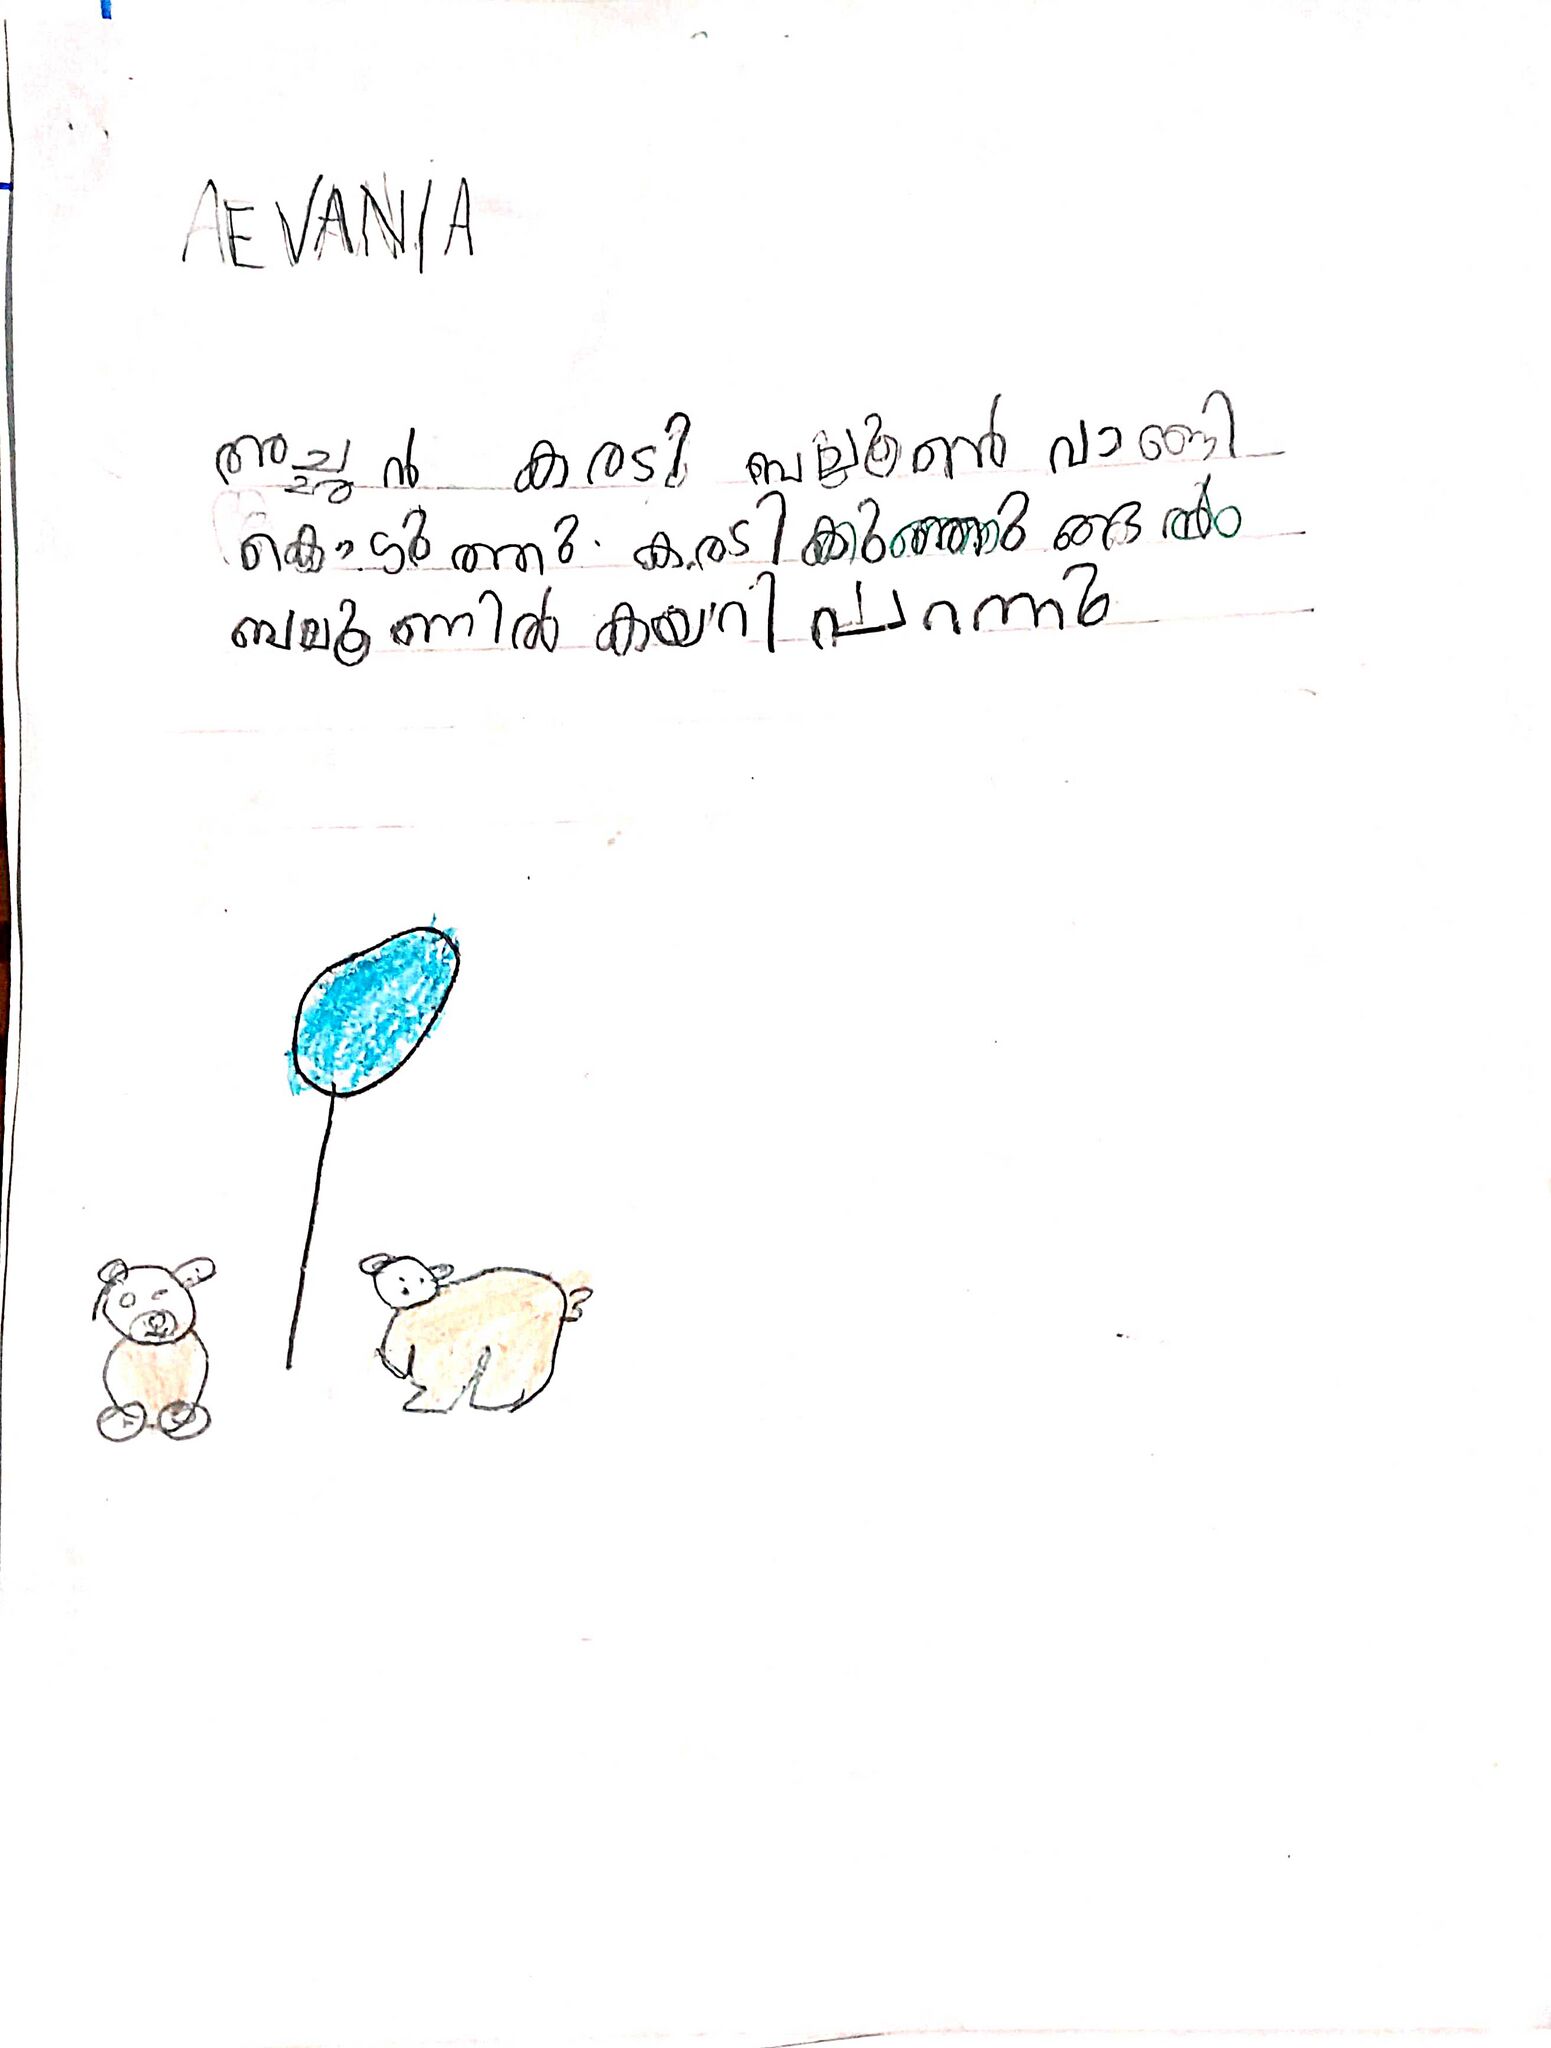 AEVANIA
അച്ചൻ കരടി ബലൂൺ വാങ്ങി
കൊടുത്തു. കരടി കുഞ്ഞുങ്ങൾ
ബലൂണിൽ കയറി പറന്നു